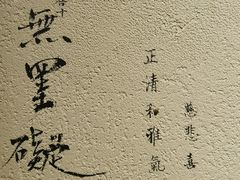 無罣礙
正清和雅氣
慈悲喜